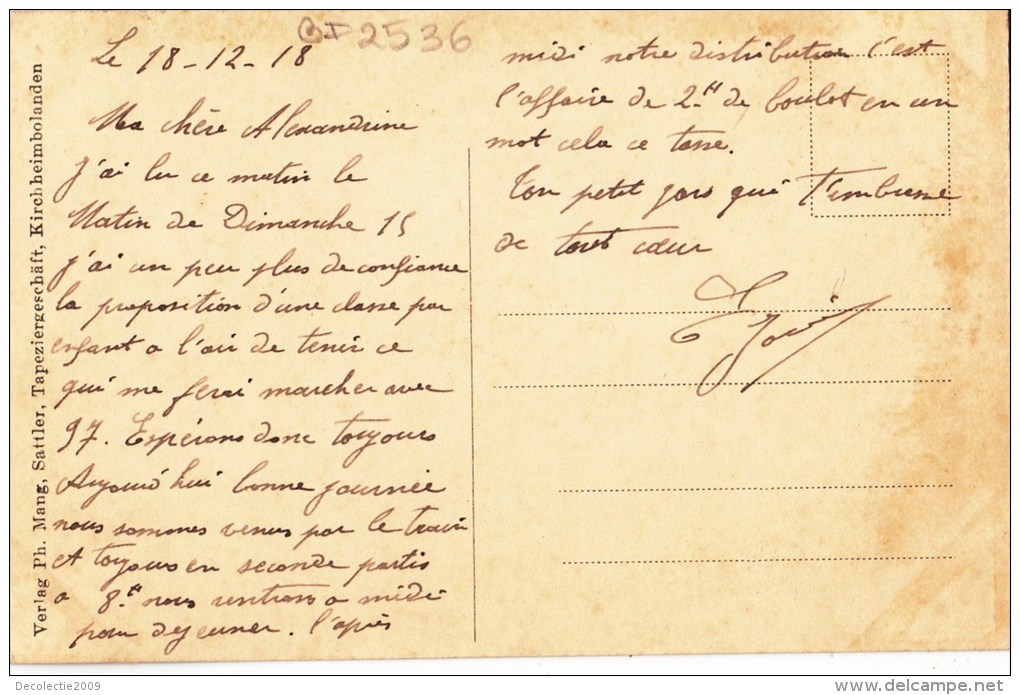 2536
Le 18-12-18
Ma chère Alexandrine
j'ai lu ce matin le
Matin de Dimanche 15
j'ai un peu plus de confiance
la proposition d'une classe par
enfant a l'air de tenir ce
qui me ferai marcher avec
97. Espérons donc toujours
Aujourd'hui bonne journée
nous sommes venus par le train
et toujours en seconde partis
a 8h nous rentrons a midi
pour dejeuner. l'après
midi notre distribution c'est
l'affaire de 2h de boulot en un
mot cela ce tasse.
Ton petit gars qui t'embrasse
de tout cœur
Verlag Ph. Mang, Sattler, Tapeziergeschäft, Kirchheimbolanden
Decolectie2009
delcampe.net